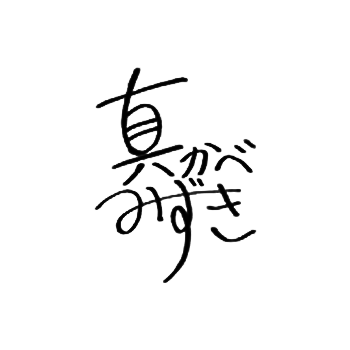 真かべ
みずき